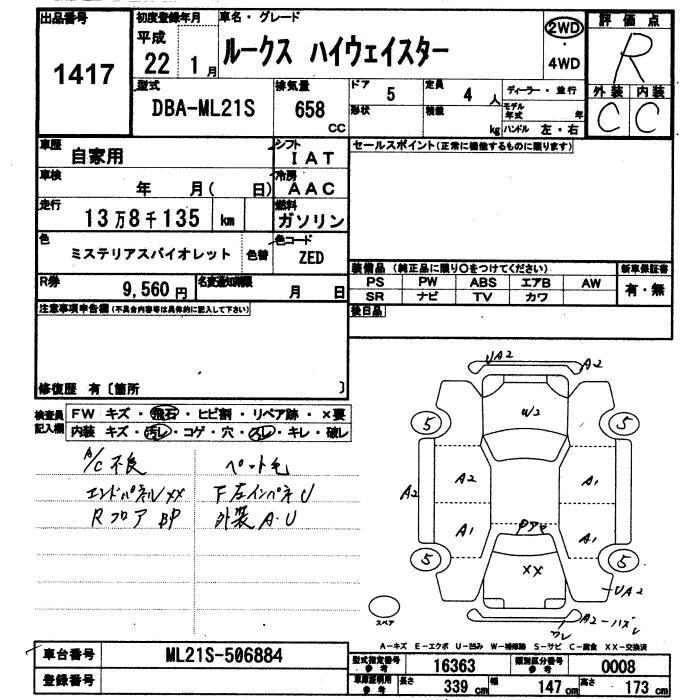 出品番号
1417
初度登録年月
平成
22 1月
車名・グレード
ルークス ハイウェイスター
2WD
・
4WD
評価点
R
外装 内装
C C
型式
DBA-ML21S
排気量
658
CC
ドア
5
形状
定員
4 人
積載
kg
ディーラー・並行
モデル年式 年
ハンドル 左・右
車歴
自家用
シフト
IAT
車検
年 月( 日)
冷房
AAC
走行
13万8千135 km
燃料
ガソリン
色
ミステリアスバイオレット
色替
色コード
ZED
R券
9,560円
名変通知期限
月 日
セールスポイント(正常に機能するものに限ります)
装備品(純正品に限り〇をつけてください)
PS PW ABS エアB AW
SR ナビ TV カワ
新車保証書
有・無
後日品
注意事項申告欄(不具合内容等は具体的に記入して下さい)
修復歴 有〔箇所 〕
検査員記入欄
FW キズ・飛石・ヒビ割・リペア跡・×要
内装 キズ・汚レ・コゲ・穴・スレ・キレ・破レ
A/C不良
エンドパネルXX
Rフロア BP
ペット毛
F左インパネU
外装A.U
UA2
A2
W2
5
5
A2
A2
A1
A1
A1
5
5
XX
UA2
A2-ハズレ
ワレ
スペア
A-キズ E-エクボ U-凹み W-補修跡 S-サビ C-腐食 XX-交換済
車台番号
ML21S-506884
登録番号
型式指定番号
参考
16363
類別区分番号
参考
0008
車庫証明用
参考
長さ
339 cm
幅
147 cm
高さ
173 cm